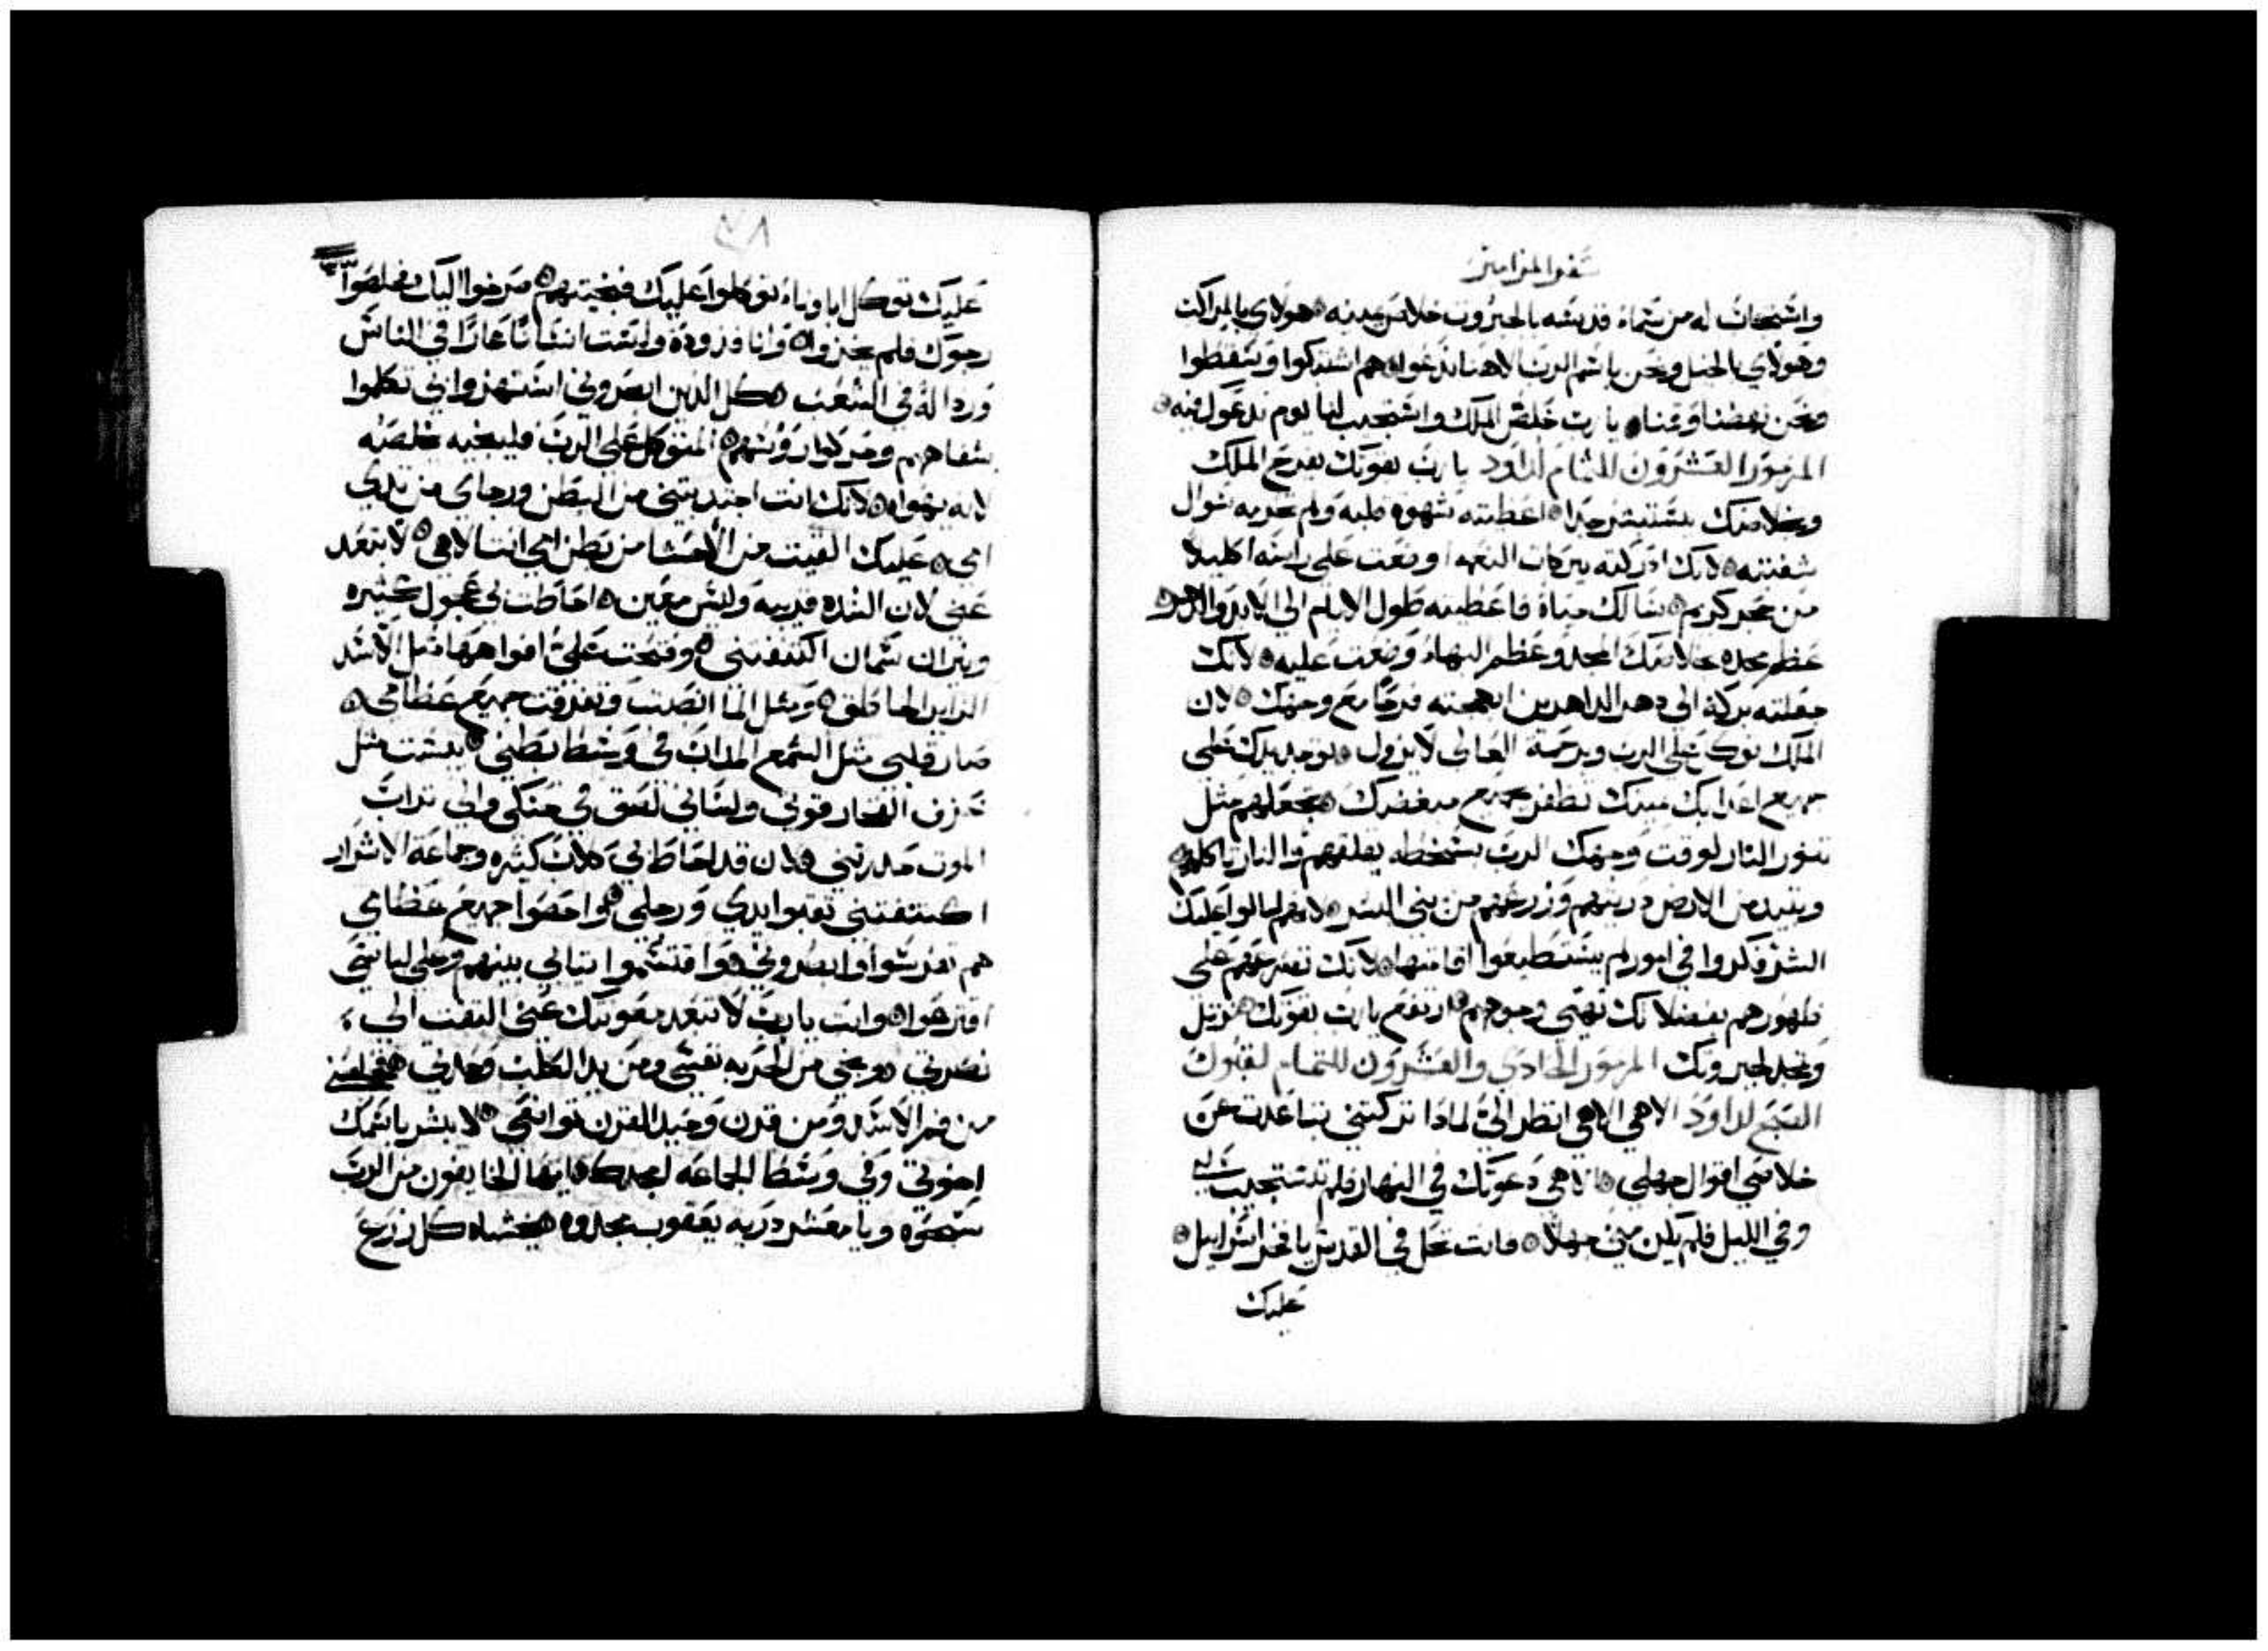 سفر المزامير
واستجاب له من سماء قدسه بالجبروت خلاص يمينه هولاي بالمراكب
وهولاي بالخيل ونحن باسم الرب الاهنا ندعوا هم اشتبكوا وسقطوا
ونحن نهضنا وقمنا يا رب خلص الملك واستجيب لنا يوم ندعوك فيه
المزمور العشرون للتمام لداود يا رب بقوتك يفرح الملك
وبخلاصك يستبشر جدا اعطيته شهوة قلبه ولم تحرمه سوال
شفتيه لانك ادركته ببركات النعمه اوضعت على راسه اكليلا
من حجر كريم سالك حياة فاعطيته طول الايام الي الابد والدهر
عظم مجده بخلاصك المجد وعظم البهاء وضعت عليه لانك
جعلته بركة الي دهر الداهرين ابهجته فرحا مع وجهك لان
الملك توكل علي الرب وبرحمة العالي لا يزول توجد يدك علي
جميع اعدايك يمينك تظفر بجميع مبغضيك تجعلهم مثل
تنور النار لوقت وجهك الرب بسخطه يقلقهم والنار تاكلهم
ويبيد من الارض دريتهم وزرعهم من بني البشر لانهم امالوا عليك
الشر فكروا في امور لم يستطيعوا اقامتها لانك تصرعهم علي
ظهورهم بفضلاتك تهيي وجوههم ارتفع يا رب بقوتك نرتل
ونمجد لجبروتك المزمور الحادي والعشرون للتمام لقبول
الصبح لداود الاهي الاهي انظر الي لمادا تركتني تباعدت عن
خلاصي اقوال جهلي الاهي دعوتك في النهار فلم تستجيب لي
وفي الليل فلم يكن مني جهلا فانت تحل في القديس يا فخر اسراييل
عليك
٢٨
٣٣
عليك توكل اباونا توكلوا عليك فنجيتهم صرخوا اليك فخلصوا
رجوك فلم يخزوا وانا فدودة ولست انسانا عارا في الناس
وردالة في الشعب كل الدين ابصروني استهزوا بي تكلموا
بشفاههم وحركوا روسهم المتوكل علي الرب فلينجيه يخلصه
لانه يهواه لانك انت اجتدبتني من البطن ورجاي من تدي
امي عليك القيت من الاحشا من بطن امي انت الاهي لا تبعد
عني لان الشده قريبه وليس معين احاطت بي عجول كثيره
وثيران سمان اكتنفتني وفتحت علي افواهها مثل الاسد
الزاير الخاطف ومثل الما انصبت وتفرقت جميع عظامي
صار قلبي مثل الشمع المداب في وسط بطني يبست مثل
خزف الفخار قوتي ولساني لصق في حنكي والي تراب
الموت حدرتني لان قد احاط بي كلاب كثيره وجماعة الاشرار
اكتنفتني تقبوا يدي ورجلي واحصوا جميع عظامي
هم تفرسوا وابصروني واقتسموا تيابي بينهم وعلي لباسي
اقترعوا وانت يا رب لا تبعد معونتك عني التفت الي
نصرتي ونجي من الحربه نفسي ومن يد الكلب وحدتي خلصني
من فم الاسد ومن قرن وحيد القرن تواضعي لابشر باسمك
اخوتي وفي وسط الجماعه امجدك ايها الخايفون من الرب
سبحوه ويا معشر درية يعقوب مجدوه يخشاه كل زرع